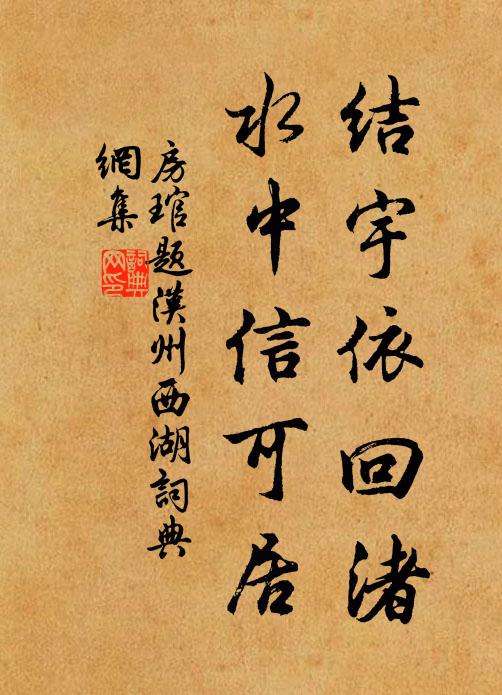 结宇依回渚
水中信可居
房琯题漢州西湖詞典
網集
詞典
网印